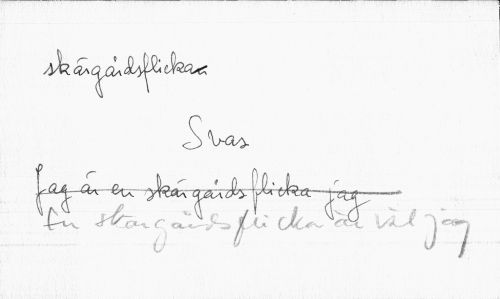 skärgårdsflickan
Svas
Jag är en skärgårdsflicka jag
En skärgårdsflicka är väl jag